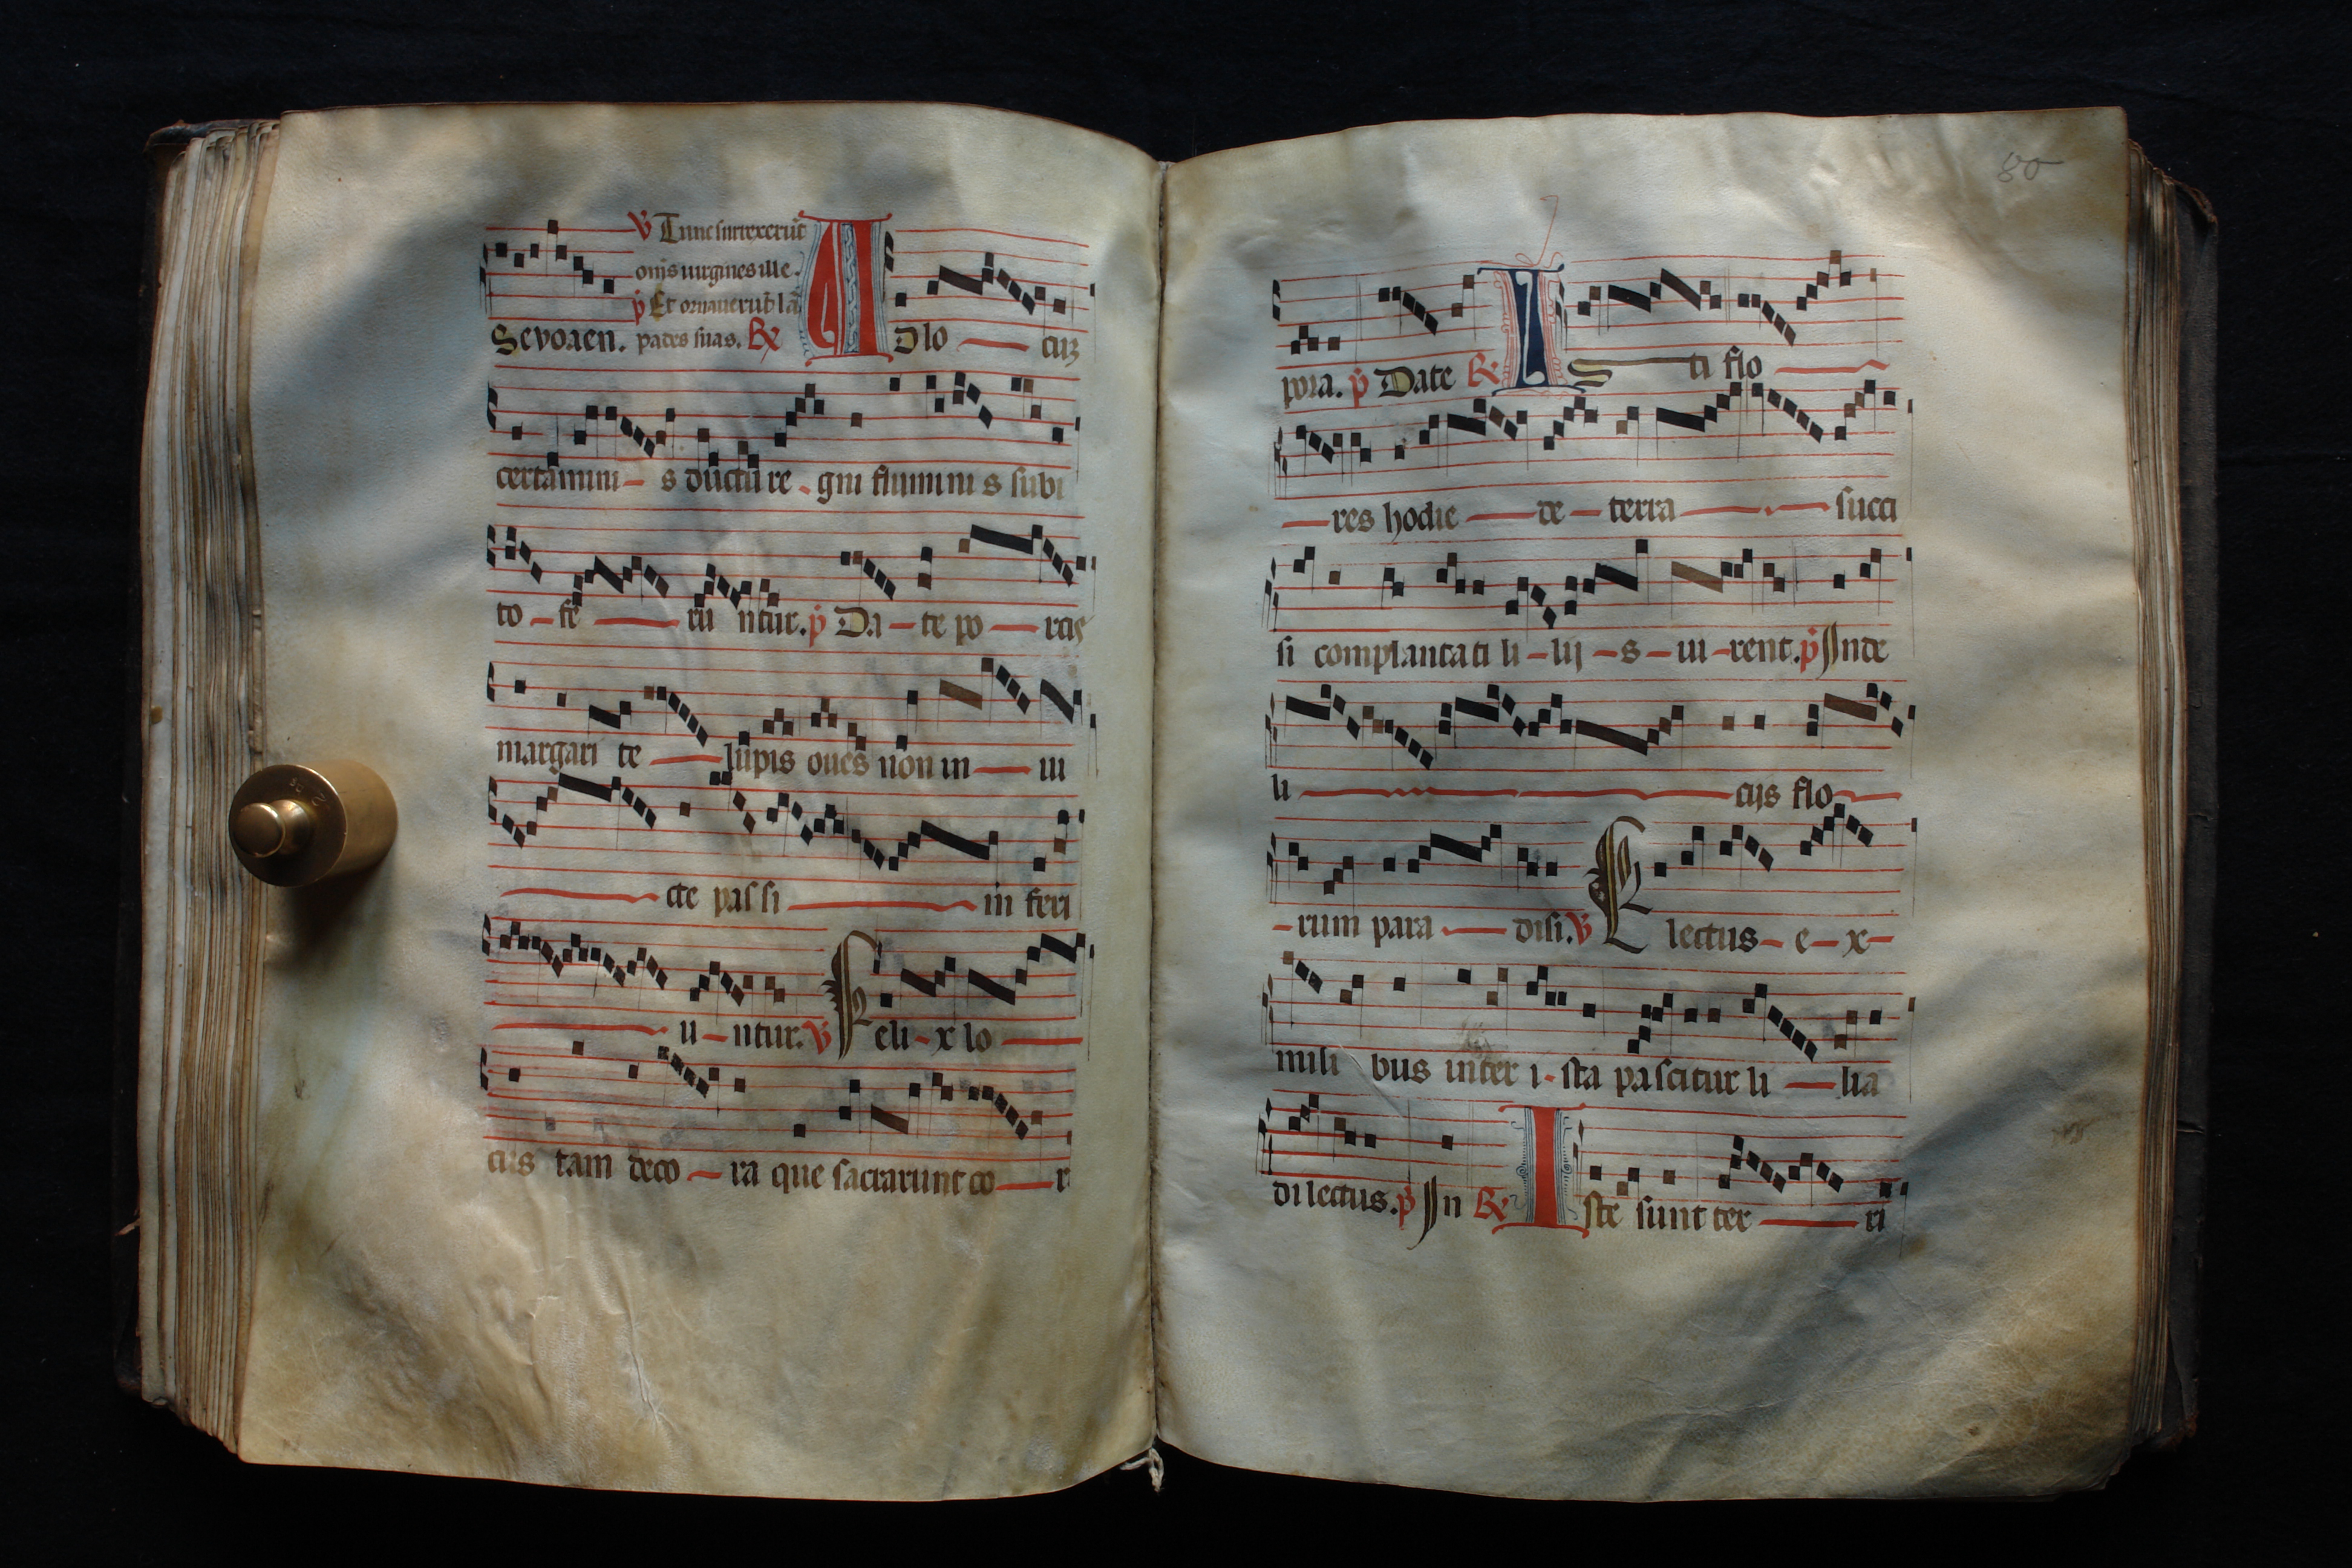 ℣ Tunc surrexerūt
om̄s uirgines ille.
p̄ Et ornauerūt lā
Seuouaen. pades suas. ℟ Ad lo — cuꝫ
certamini – s ductu re – gni fluminis subi
to – fe — ru ntur. p̄ Da – te po — rcis
margari te — lupis oues non in — ui
— cte pas si — in feri
— u – ntur. ℣ Feli – x lo —
cus tam deco – ra que sacrarunt co — r
80
pora. p̄ Date ℟ Is — ti flo —
— res hodie — de – terra — . — succi
si complantati li – lij – s – ui – rent. p̄ Inde
li — cijs flo —
– rum para — disi. ℣ Electus – e – x –
mili bus inter i – sta pascitur li — lia
dilectus. p̄ In ℟ Iste sunt ter — ri